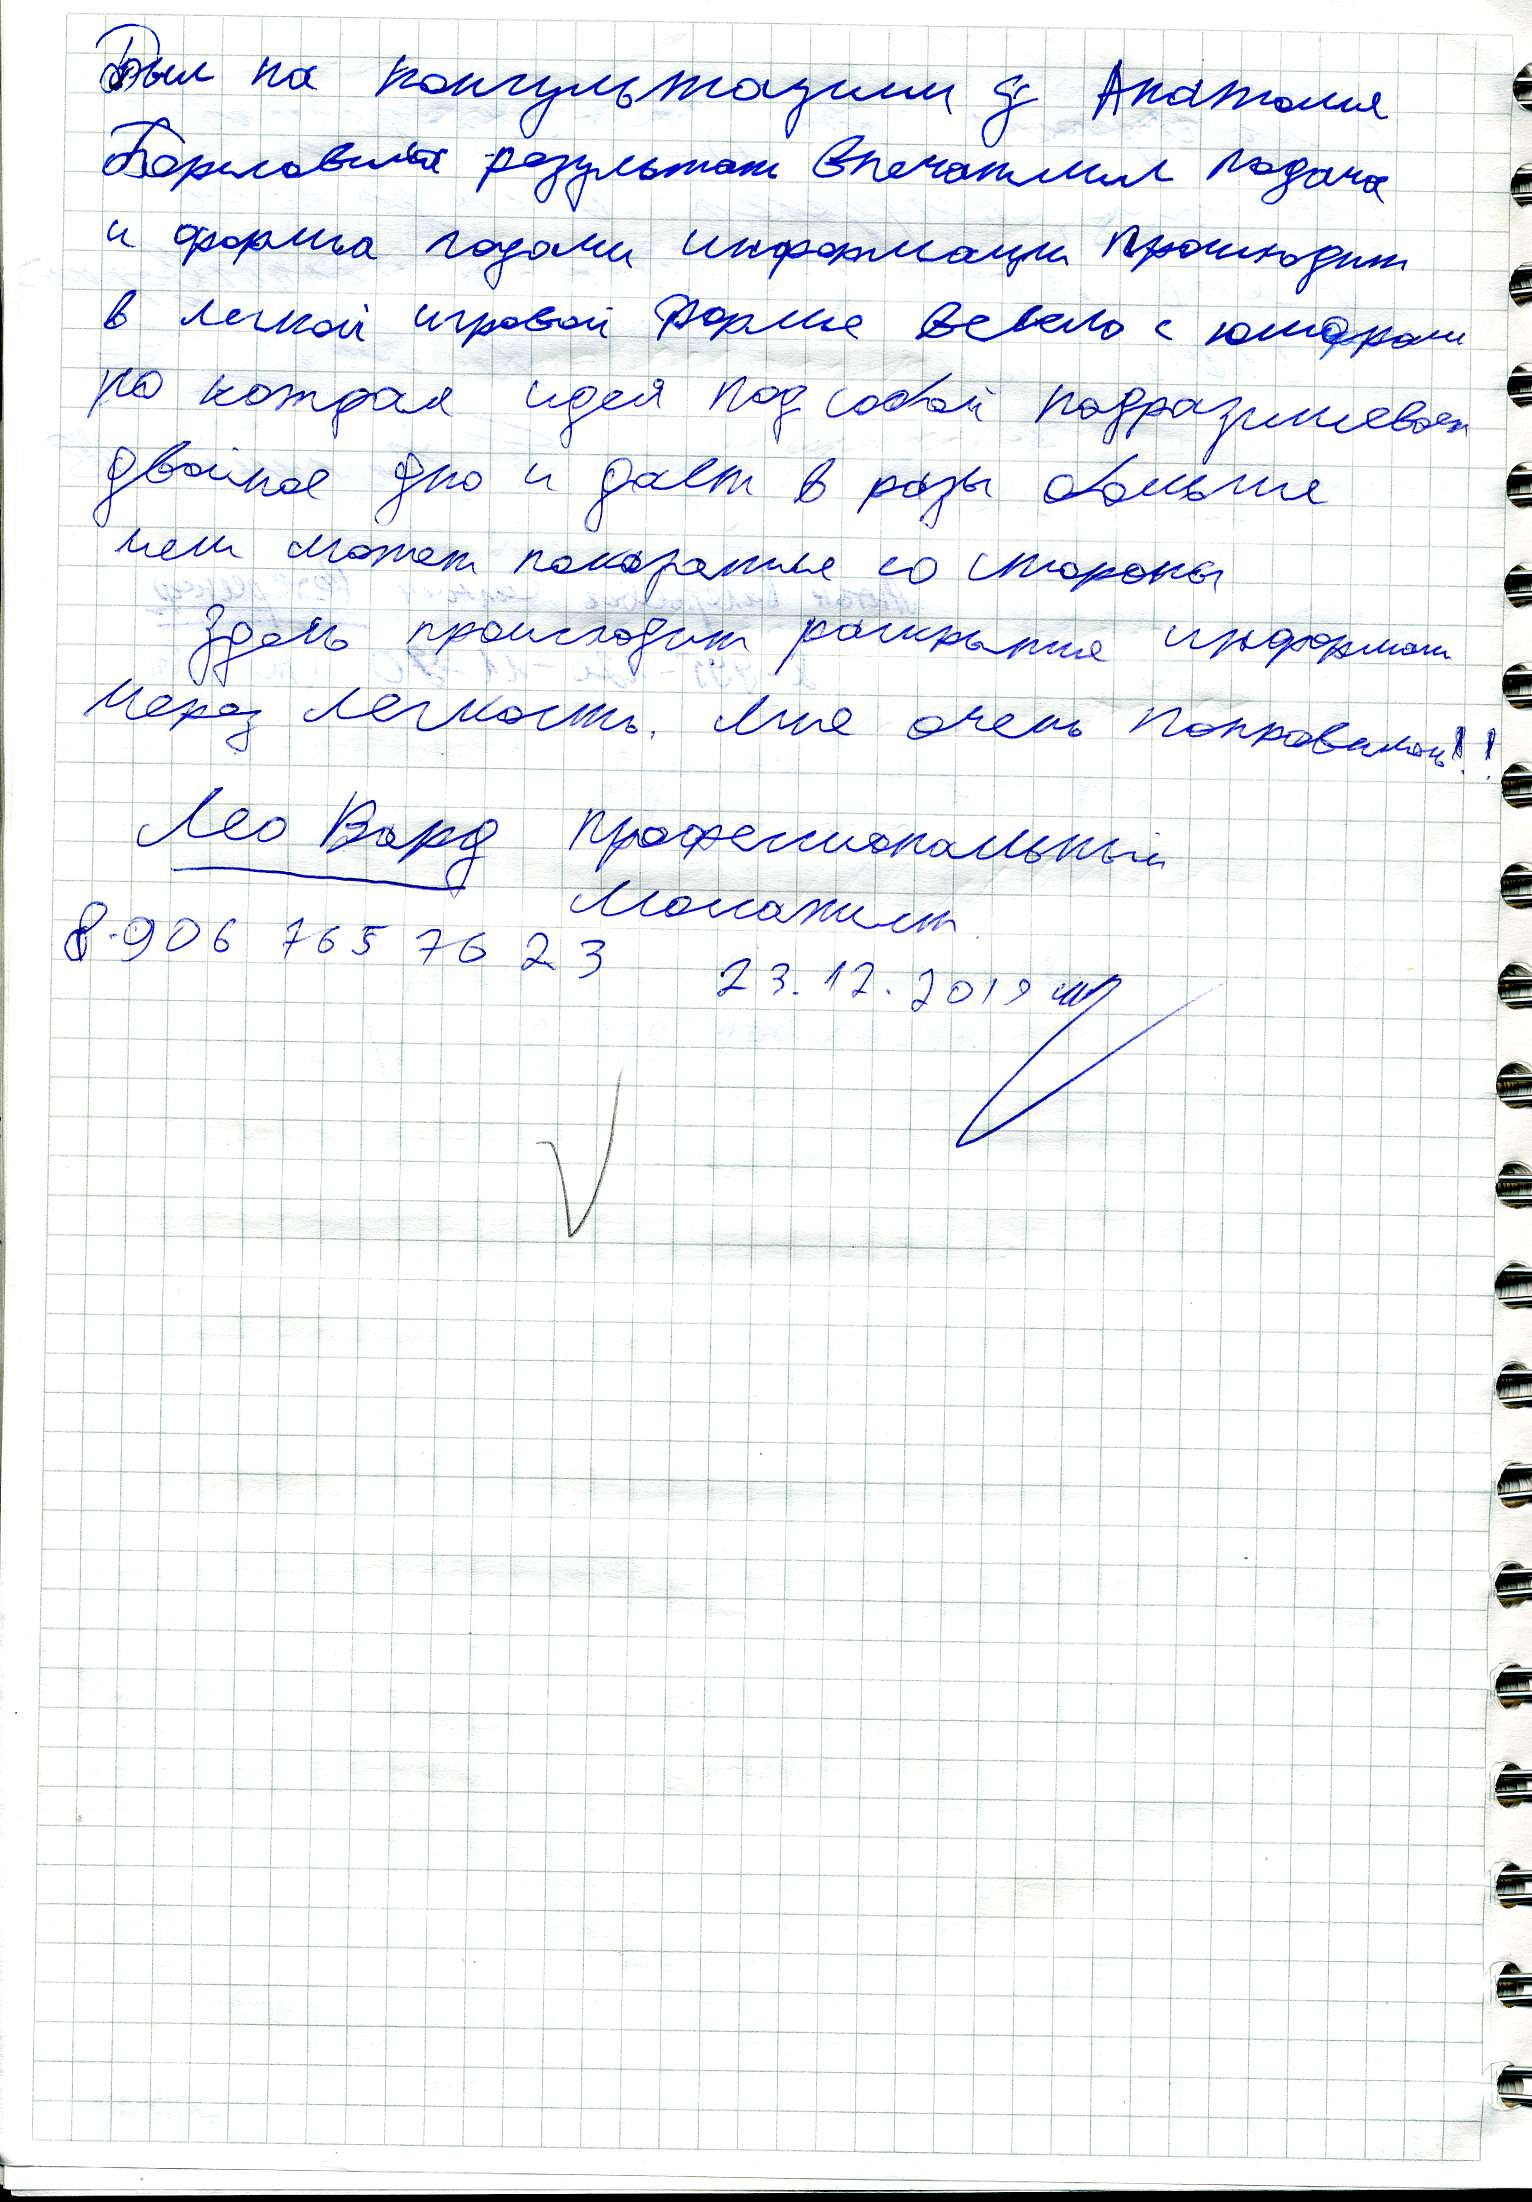 Был на консультации у Анатолия
Борисовича результат впечатлил подача
и форма подачи информации происходит
в легкой игровой форме весело с юмором
но которая идея под собой подразумевает
двойное дно и дает в разы больше
чем может показаться со стороны
Здесь происходит раскрытие информаци
через легкость. Мне очень понравилось!!
Лео Вард Профессиональный
Масажист.
8-906 765 76 23
23.12.2019